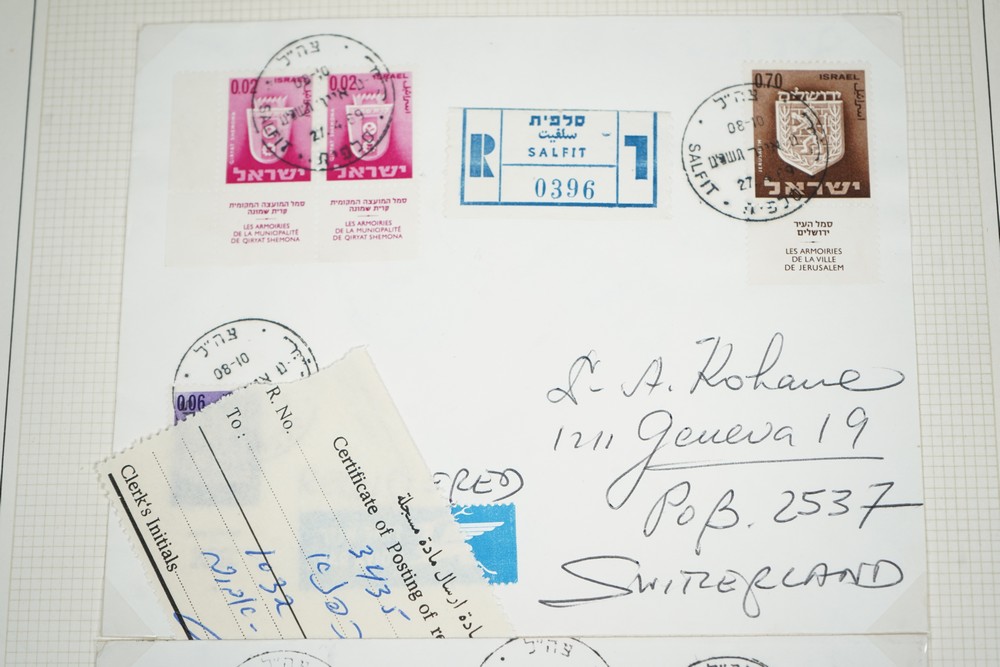 צה"ל
08-10
SALFIT
27.4.69
0.02
ISRAEL
QIRYAT SHEMONA
ישראל
סמל המועצה המקומית
קרית שמונה
LES ARMOIRIES
DE LA MUNICIPALITÉ
DE QIRYAT SHEMONA
0.02
ISRAEL
QIRYAT SHEMONA
ישראל
סמל המועצה המקומית
קרית שמונה
LES ARMOIRIES
DE LA MUNICIPALITÉ
DE QIRYAT SHEMONA
R
סלפית
سلفيت
SALFIT
0396
ך
צה"ל
08-10
SALFIT
27
סלפית
0.70
ISRAEL
اسرائيل
ירושלים
ישראל
סמל העיר
ירושלים
LES ARMOIRIES
DE LA VILLE
DE JERUSALEM
צה"ל
08-10
0.06
Dr A. Kohane
1211 Geneva 19
PoB. 2537
SWITZERLAND
R. No.
To:
Certificate of Posting of re
شهادة ارسال مادة مسجلة
Clerk's Initials
3435
1032
צה"ל